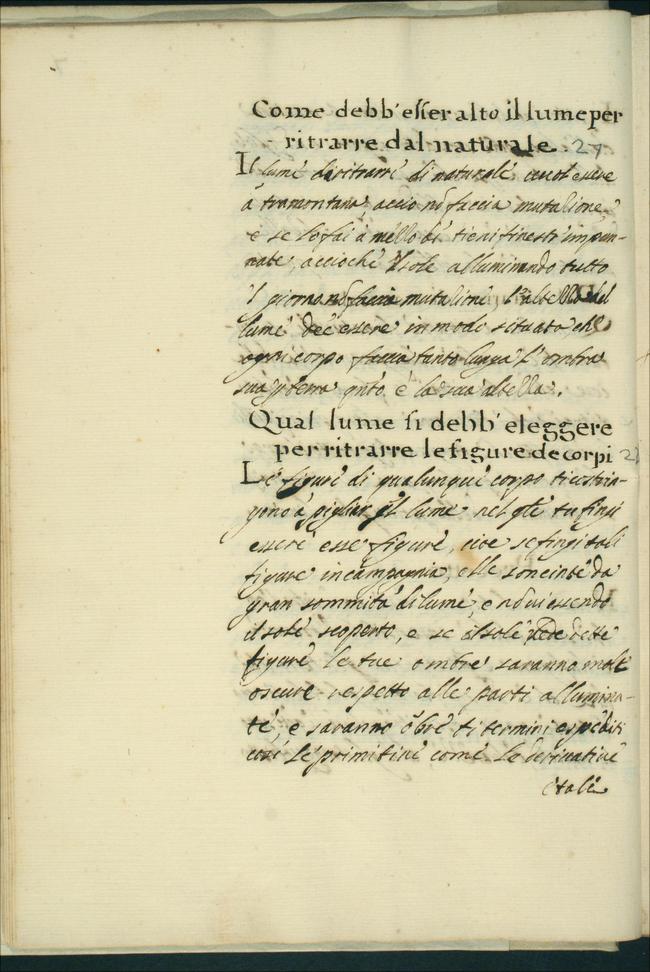 Come debb'esser alto il lume per
ritrarre dal naturale. 27
Il lume da ritrarre di naturale vuol essere
à tramontana, accio nõ faccia mutatione,
e se lo fai à mezzo dì, tieni finestr' impan-
nate, accioche 'l sole alluminando tutto
'l giorno nõ faccia mutatione, l'altezza del
lume dee essere in modo situato che
ogni corpo faccia tanto lunga l'ombra
sua p terra qnto è la sua altezza.
Qual lume si debb'eleggere
per ritrarre le figure de corpi 2
Le figure di qualunque corpo ti costrin-
gono à pigliar il lume nel qle tu fingi
essere esse figure, cioe se fingi tali
figure in campagnia, elle son cinte da
gran sommità di lume, e nõ vi essendo
il sole scoperto, e se il sole vede dette
figure le tue ombre saranno molt
oscure rispetto alle parti allumina-
te, e saranno ōbre di termini espediti
così le primitive come le derivative
e tale